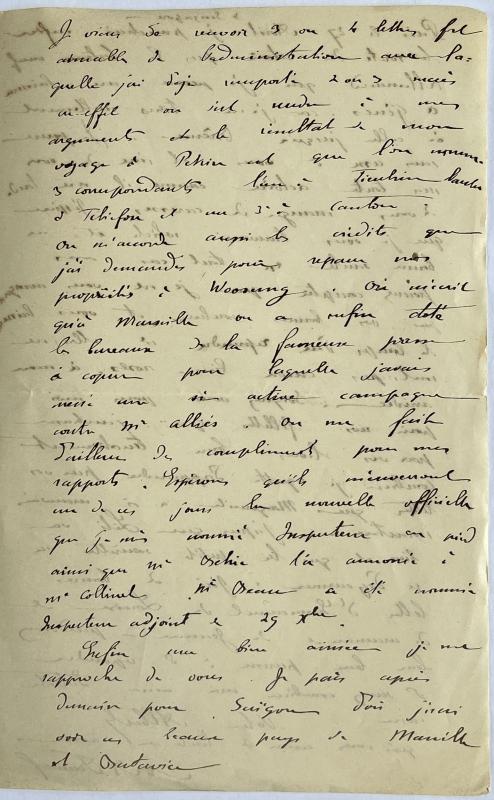 Je viens de recevoir 3 ou 4 lettres fort
aimables de l'administration avec la-
quelle j'ai déjà remporté 2 ou 3 succès
en effet on s'est rendu à mes
arguments et le résultat de mon
voyage à Pékin est que l'on nomme
3 correspondants l'un à Tientsin l'autre
à et un 3e à Canton
On m'accorde aussi les crédits que
j'ai demandés pour réparer nos
propriétés à Woosung. On m'écrit
qu'à Marseille on a enfin doté
les bureaux de la fameuse presse
à copier pour laquelle j'avais
mené une si active campagne
contre Mr Alliès. On me fait
d'ailleurs des compliments pour mes
rapports. Espérons qu'ils m'enverront
un de ces jours la nouvelle officielle
que je suis nommé Inspecteur en pied
ainsi que Mr l'a annoncé à
Mr Collinet. Mr a été nommé
Inspecteur adjoint le 29 Xbre.
Enfin une bien aimée je me
rapproche de vous. Je pars après
demain pour Saïgon d'où j'irai
voir ces beaux pays de Manille
et Batavia